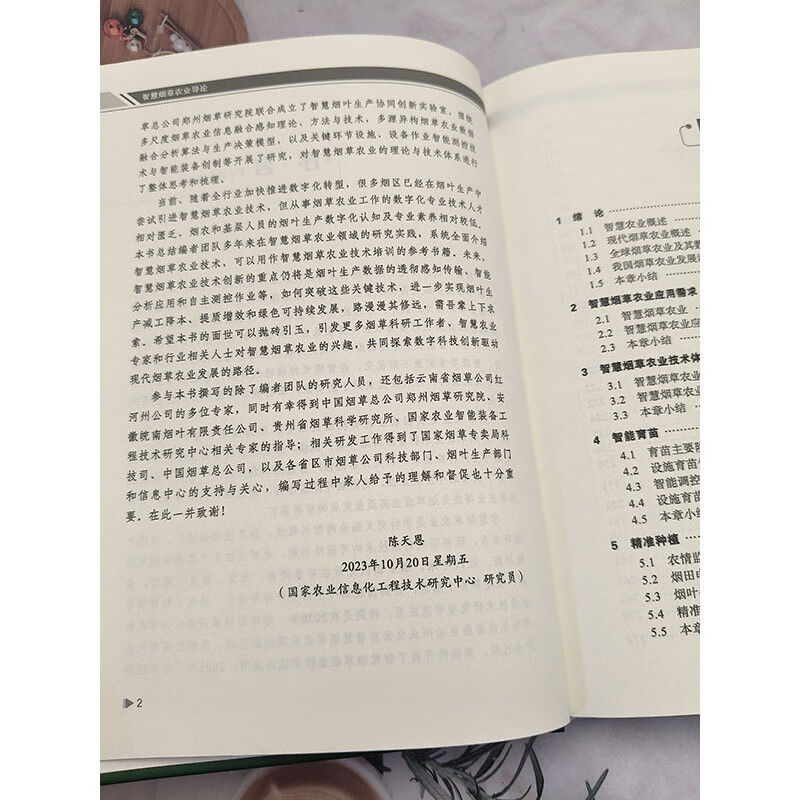 智慧烟草农业导论
草总公司郑州烟草研究院联合成立了智慧烟叶生产协同创新实验室，围绕
多尺度烟草农业信息融合感知理论、方法与技术，多源异构烟草农业数据
融合分析算法与生产决策模型，以及关键环节设施、设备作业智能测控技
术与智能装备创制等开展了研究，对智慧烟草农业的理论与技术体系进行
了整体思考和梳理。
当前，随着全行业加快推进数字化转型，很多烟区已经在烟叶生产中
尝试引进智慧烟草农业技术，但从事烟草农业工作的数字化专业技术人才
相对匮乏，烟农和基层人员的烟叶生产数字化认知及专业素养相对较低。
本书总结编者团队多年来在智慧烟草农业领域的研究实践，系统全面介绍
智慧烟草农业技术，可以用作智慧烟草农业技术培训的参考书籍。未来，
智慧烟草农业技术创新的重点仍将是烟叶生产数据的透彻感知传输、智能
分析应用和自主测控作业等，如何突破这些关键技术，进一步实现烟叶生
产减工降本、提质增效和绿色可持续发展，路漫漫其修远，需吾辈上下求
索。希望本书的面世可以抛砖引玉，引发更多烟草科研工作者、智慧农业
专家和行业相关人士对智慧烟草农业的兴趣，共同探索数字科技创新驱动
现代烟草农业发展的路径。
参与本书撰写的除了编者团队的研究人员，还包括云南省烟草公司红
河州公司的多位专家，同时有幸得到中国烟草总公司郑州烟草研究院、安
徽皖南烟叶有限责任公司、贵州省烟草科学研究所、国家农业智能装备工
程技术研究中心相关专家的指导；相关研发工作得到了国家烟草专卖局科
技司、中国烟草总公司，以及各省区市烟草公司科技部门、烟叶生产部门
和信息中心的支持与关心，编写过程中家人给予的理解和督促也十分重
要。在此一并致谢！
陈天恩
2023年10月20日星期五
（国家农业信息化工程技术研究中心 研究员）
2
1 绪 论
1.1 智慧农业概述
1.2 现代烟草农业概述
1.3 全球烟草农业及其数
1.4 我国烟草农业发展
1.5 本章小结
2 智慧烟草农业应用需求
2.1 智慧烟草农业
2.2 智慧烟草农业应
2.3 本章小结
3 智慧烟草农业技术体
3.1 智慧烟草农业
3.2 智慧烟草农业
3.3 本章小结
4 智能育苗
4.1 育苗主要
4.2 设施育苗
4.3 智能调控
4.4 设施育苗
4.5 本章小
5 精准种植
5.1 农情监
5.2 烟田
5.3 烟叶
5.4 精准
5.5 本章